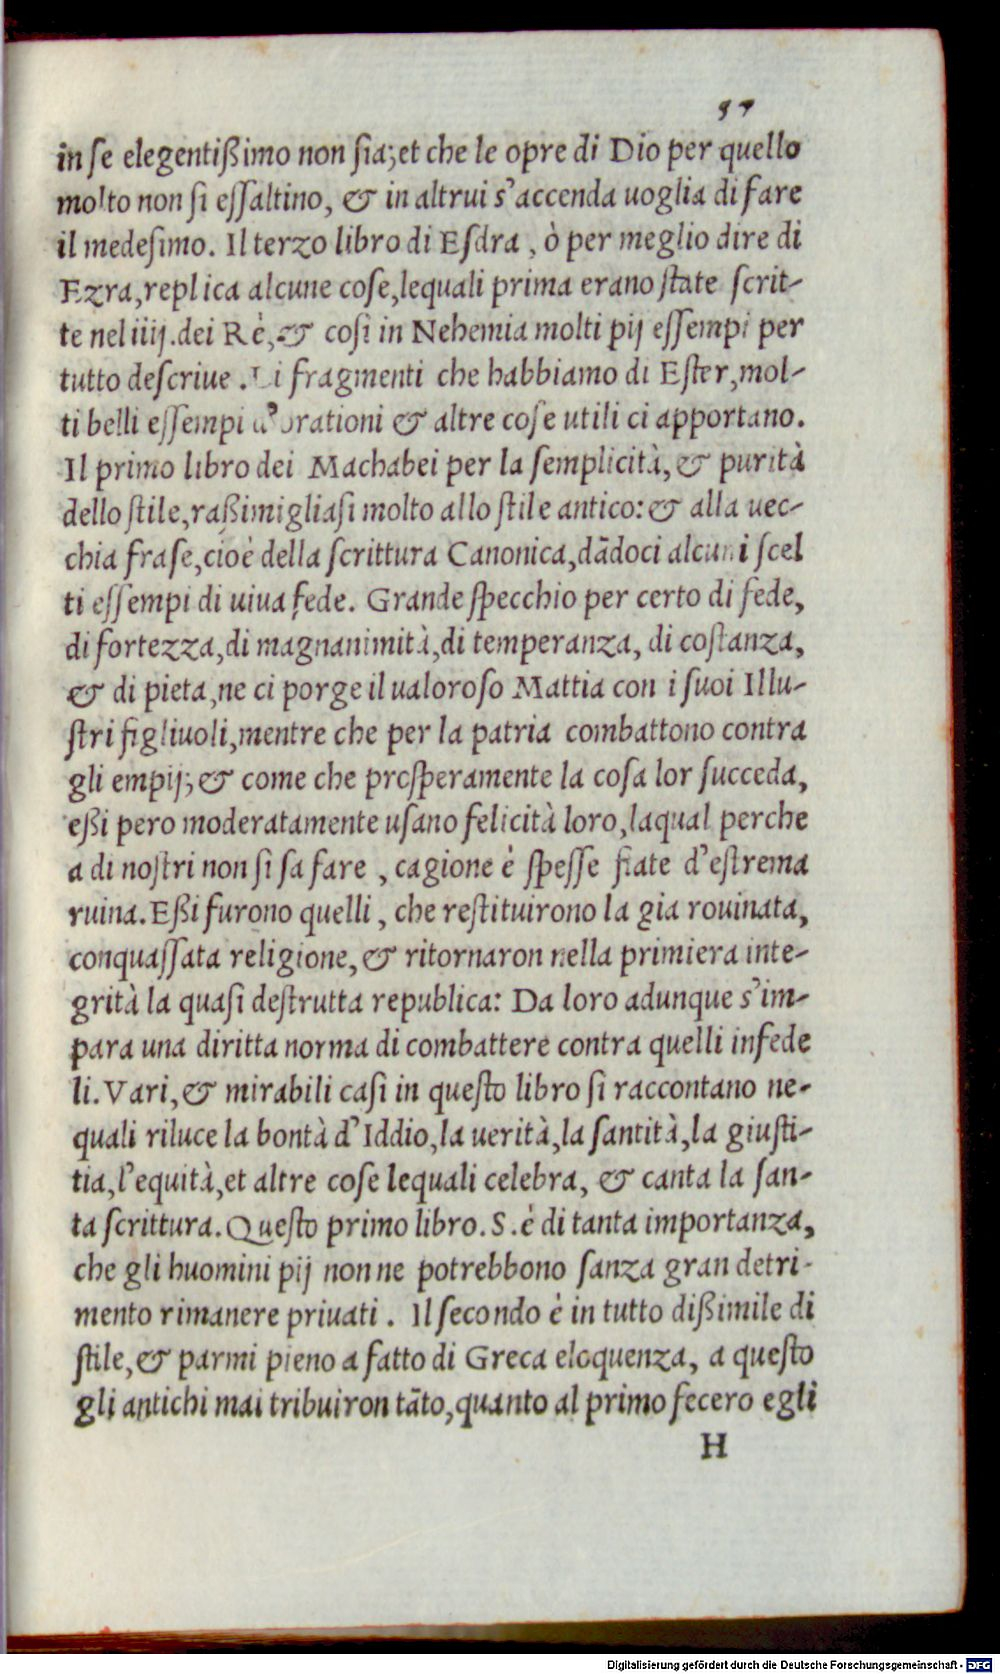 57
in se elegentißimo non sia; et che le opre di Dio per quello
molto non si essaltino, & in altrui s'accenda uoglia di fare
il medesimo. Il terzo libro di Esdra, ò per meglio dire di
Ezra, replica alcune cose, lequali prima erano state scrit-
te nel iiij. dei Rè, & cosi in Nehemia molti pij essempi per
tutto descriue. Li fragmenti che habbiamo di Ester, mol-
ti belli essempi d'orationi & altre cose utili ci apportano.
Il primo libro dei Machabei per la semplicità, & purità
dello stile, raßimigliasi molto allo stile antico: & alla uec-
chia frase, cioè della scrittura Canonica, dādoci alcuni scel
ti essempi di uiua fede. Grande specchio per certo di fede,
di fortezza, di magnanimità, di temperanza, di costanza,
& di pieta, ne ci porge il ualoroso Mattia con i suoi Illu-
stri figliuoli, mentre che per la patria combattono contra
gli empij; & come che prosperamente la cosa lor succeda,
eßi pero moderatamente usano felicità loro, laqual perche
a di nostri non si sa fare, cagione è spesse fiate d'estrema
ruina. Eßi furono quelli, che restituirono la gia rouinata,
conquassata religione, & ritornaron nella primiera inte-
grità la quasi destrutta republica: Da loro adunque s'im-
para una diritta norma di combattere contra quelli infede
li. Vari, & mirabili casi in questo libro si raccontano ne-
quali riluce la bontà d'Iddio, la uerità, la santità, la giusti-
tia, l'equità, et altre cose lequali celebra, & canta la san-
ta scrittura. Questo primo libro. S. è di tanta importanza,
che gli huomini pij non ne potrebbono sanza gran detri-
mento rimanere priuati. Il secondo è in tutto dißimile di
stile, & parmi pieno a fatto di Greca eloquenza, a questo
gli antichi mai tribuiron tāto, quanto al primo fecero egli
H
Digitalisierung gefördert durch die Deutsche Forschungsgemeinschaft - DFG